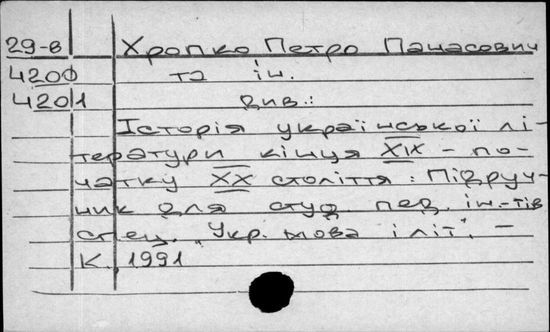 29-в Хропко Петро Панасович
4200 та ін.
4201 див.:
Історія української лі-
тератури кінця XIX - по-
чатку XX століття: Підруч-
ник для студ. пед. ін.-тів
спец. „Укр. мова і літ.". -
К., 1991